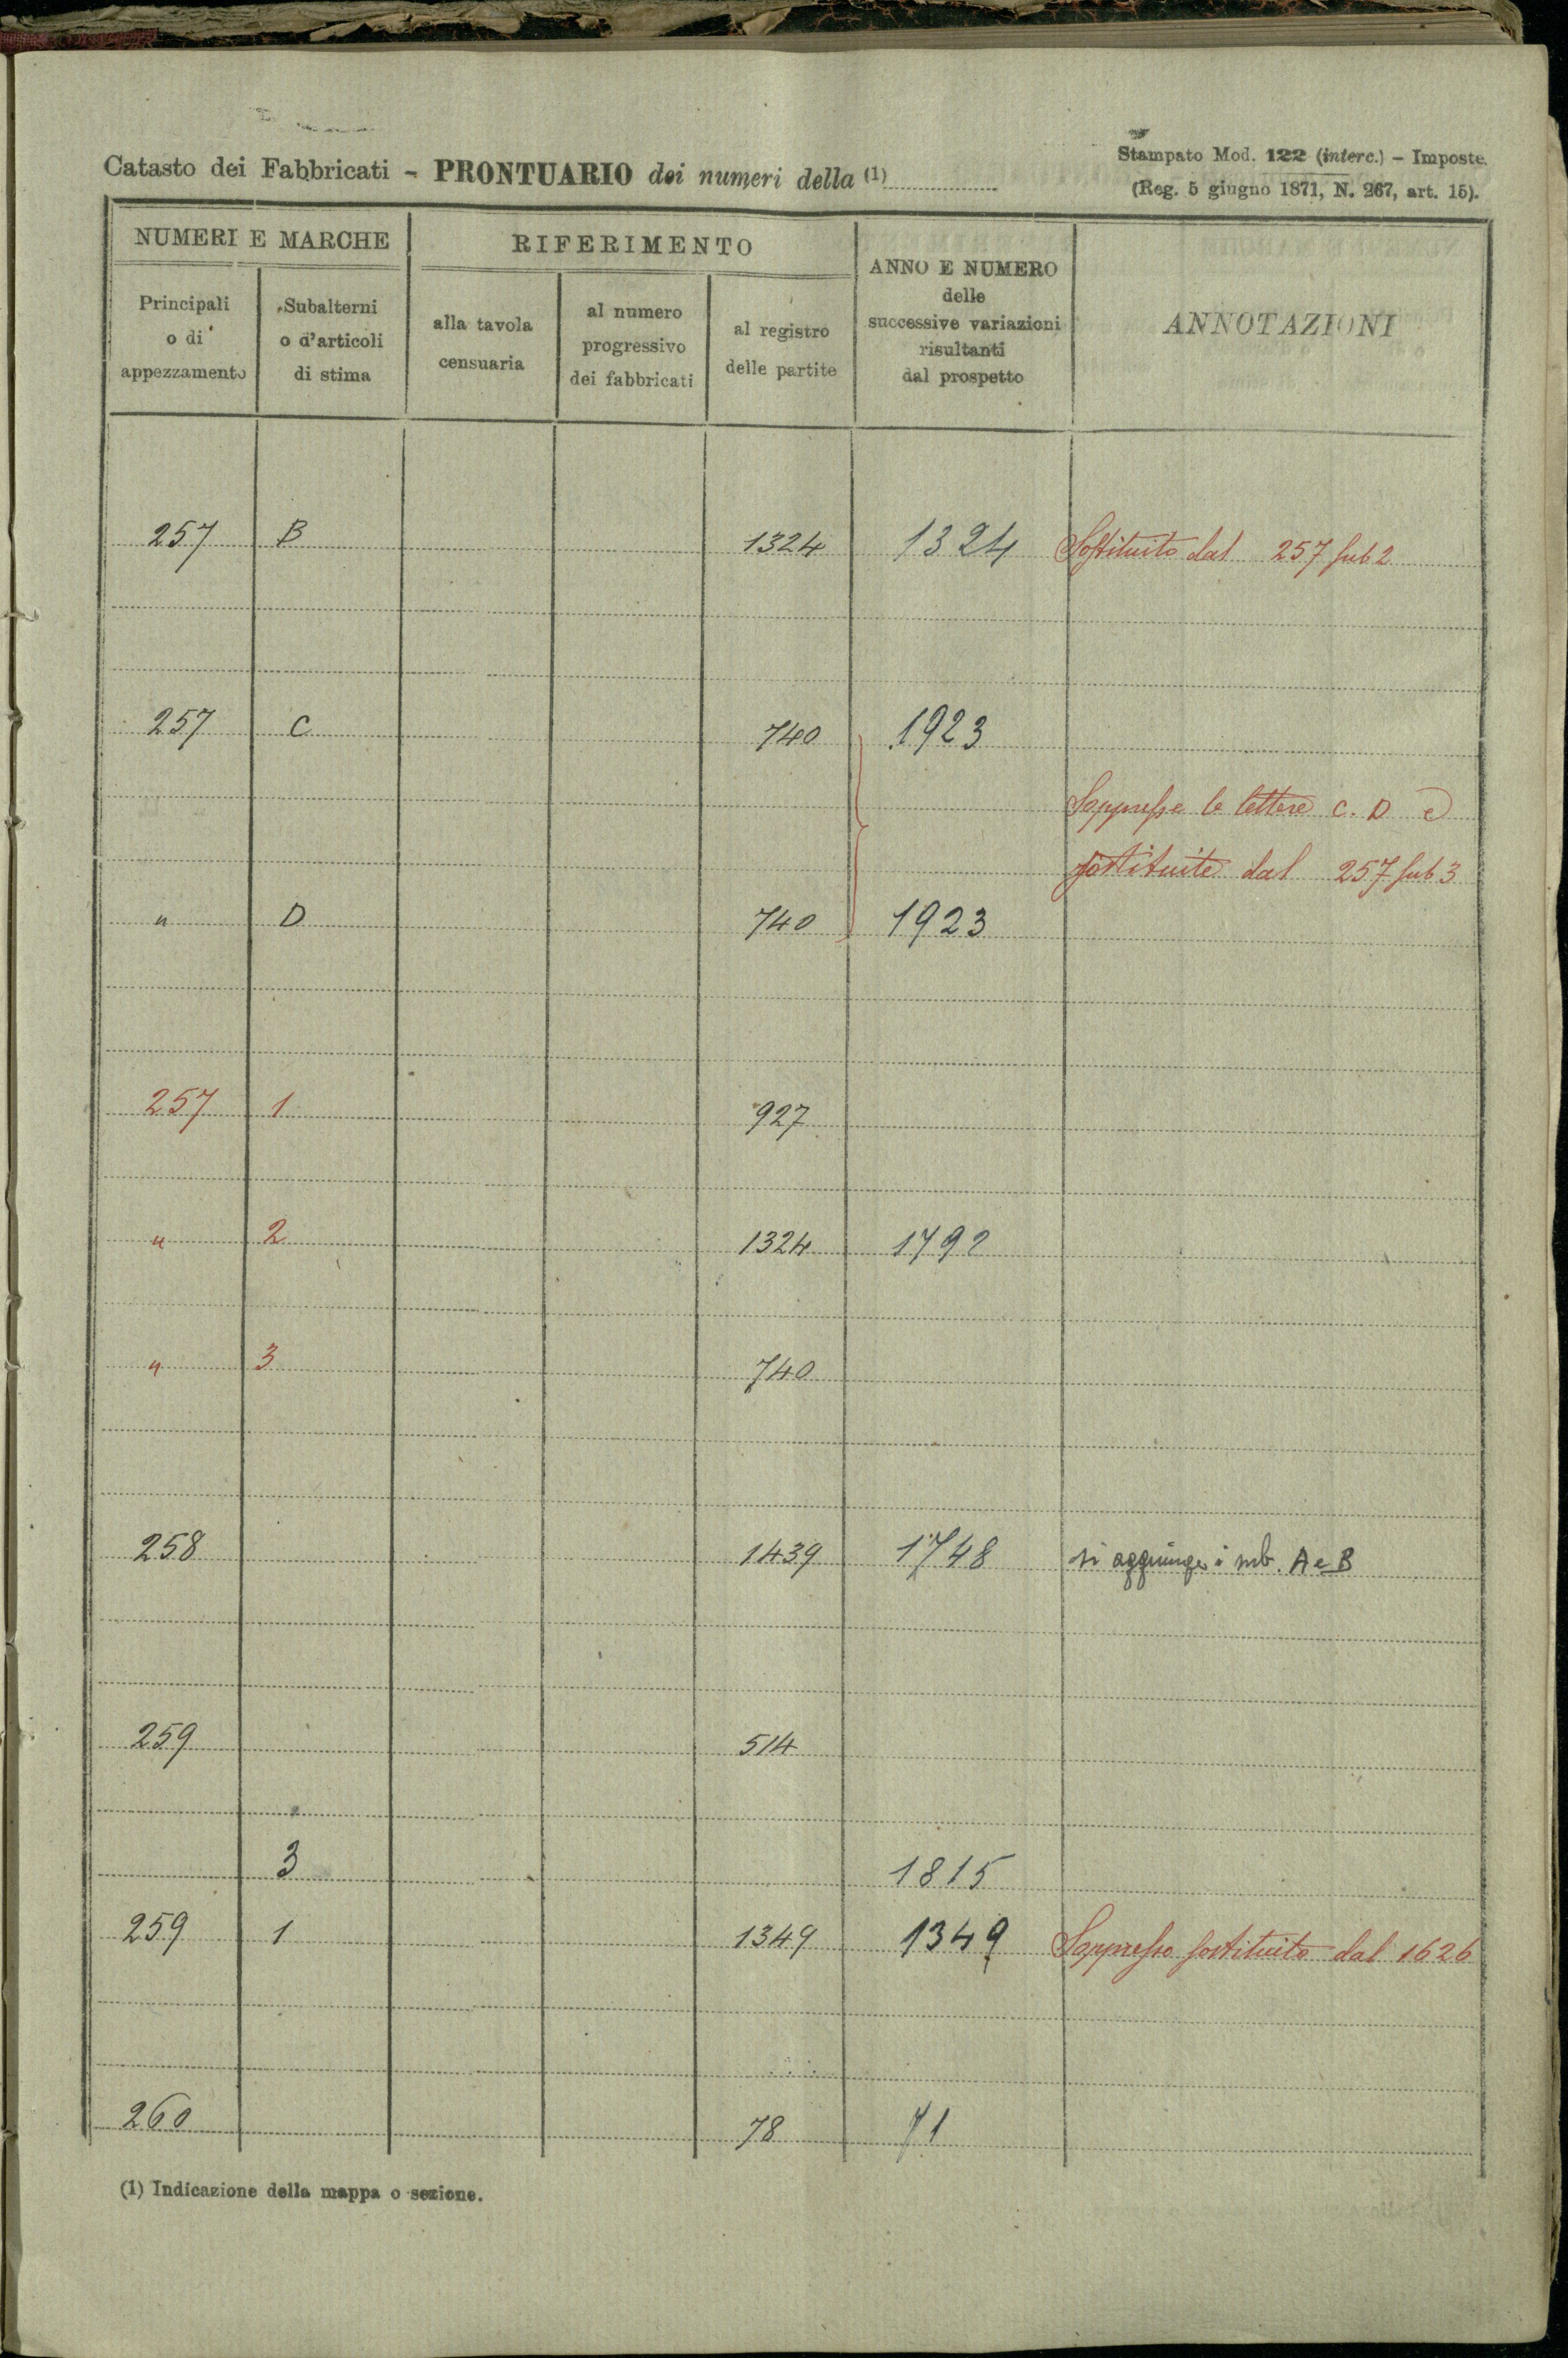 Catasto dei Fabbricati - PRONTUARIO dei numeri della (1)
Stampato Mod. 122 (interc.) - Imposte.
(Reg. 5 giugno 1871, N. 267, art. 15).
NUMERI E MARCHE
RIFERIMENTO
ANNO E NUMERO
delle
successive variazioni
risultanti
dal prospetto
ANNOTAZIONI
Principali
o di
appezzamento
Subalterni
o d'articoli
di stima
alla tavola
censuaria
al numero
progressivo
dei fabbricati
al registro
delle partite
257 B 1324 1324 Sostituito dal 257 sub 2
257 C 740 1923
Soppresse le lettere C. D e
sostituite dal 257 sub 3
" D 740 1923
257 1 927
" 2 1324 1792
" 3 740
258 1439 1748 si aggiunge i sub. A e B
259 514
3 1815
259 1 1349 1349 Soppresso sostituito dal 1626
260 78 71
(1) Indicazione della mappa o sezione.